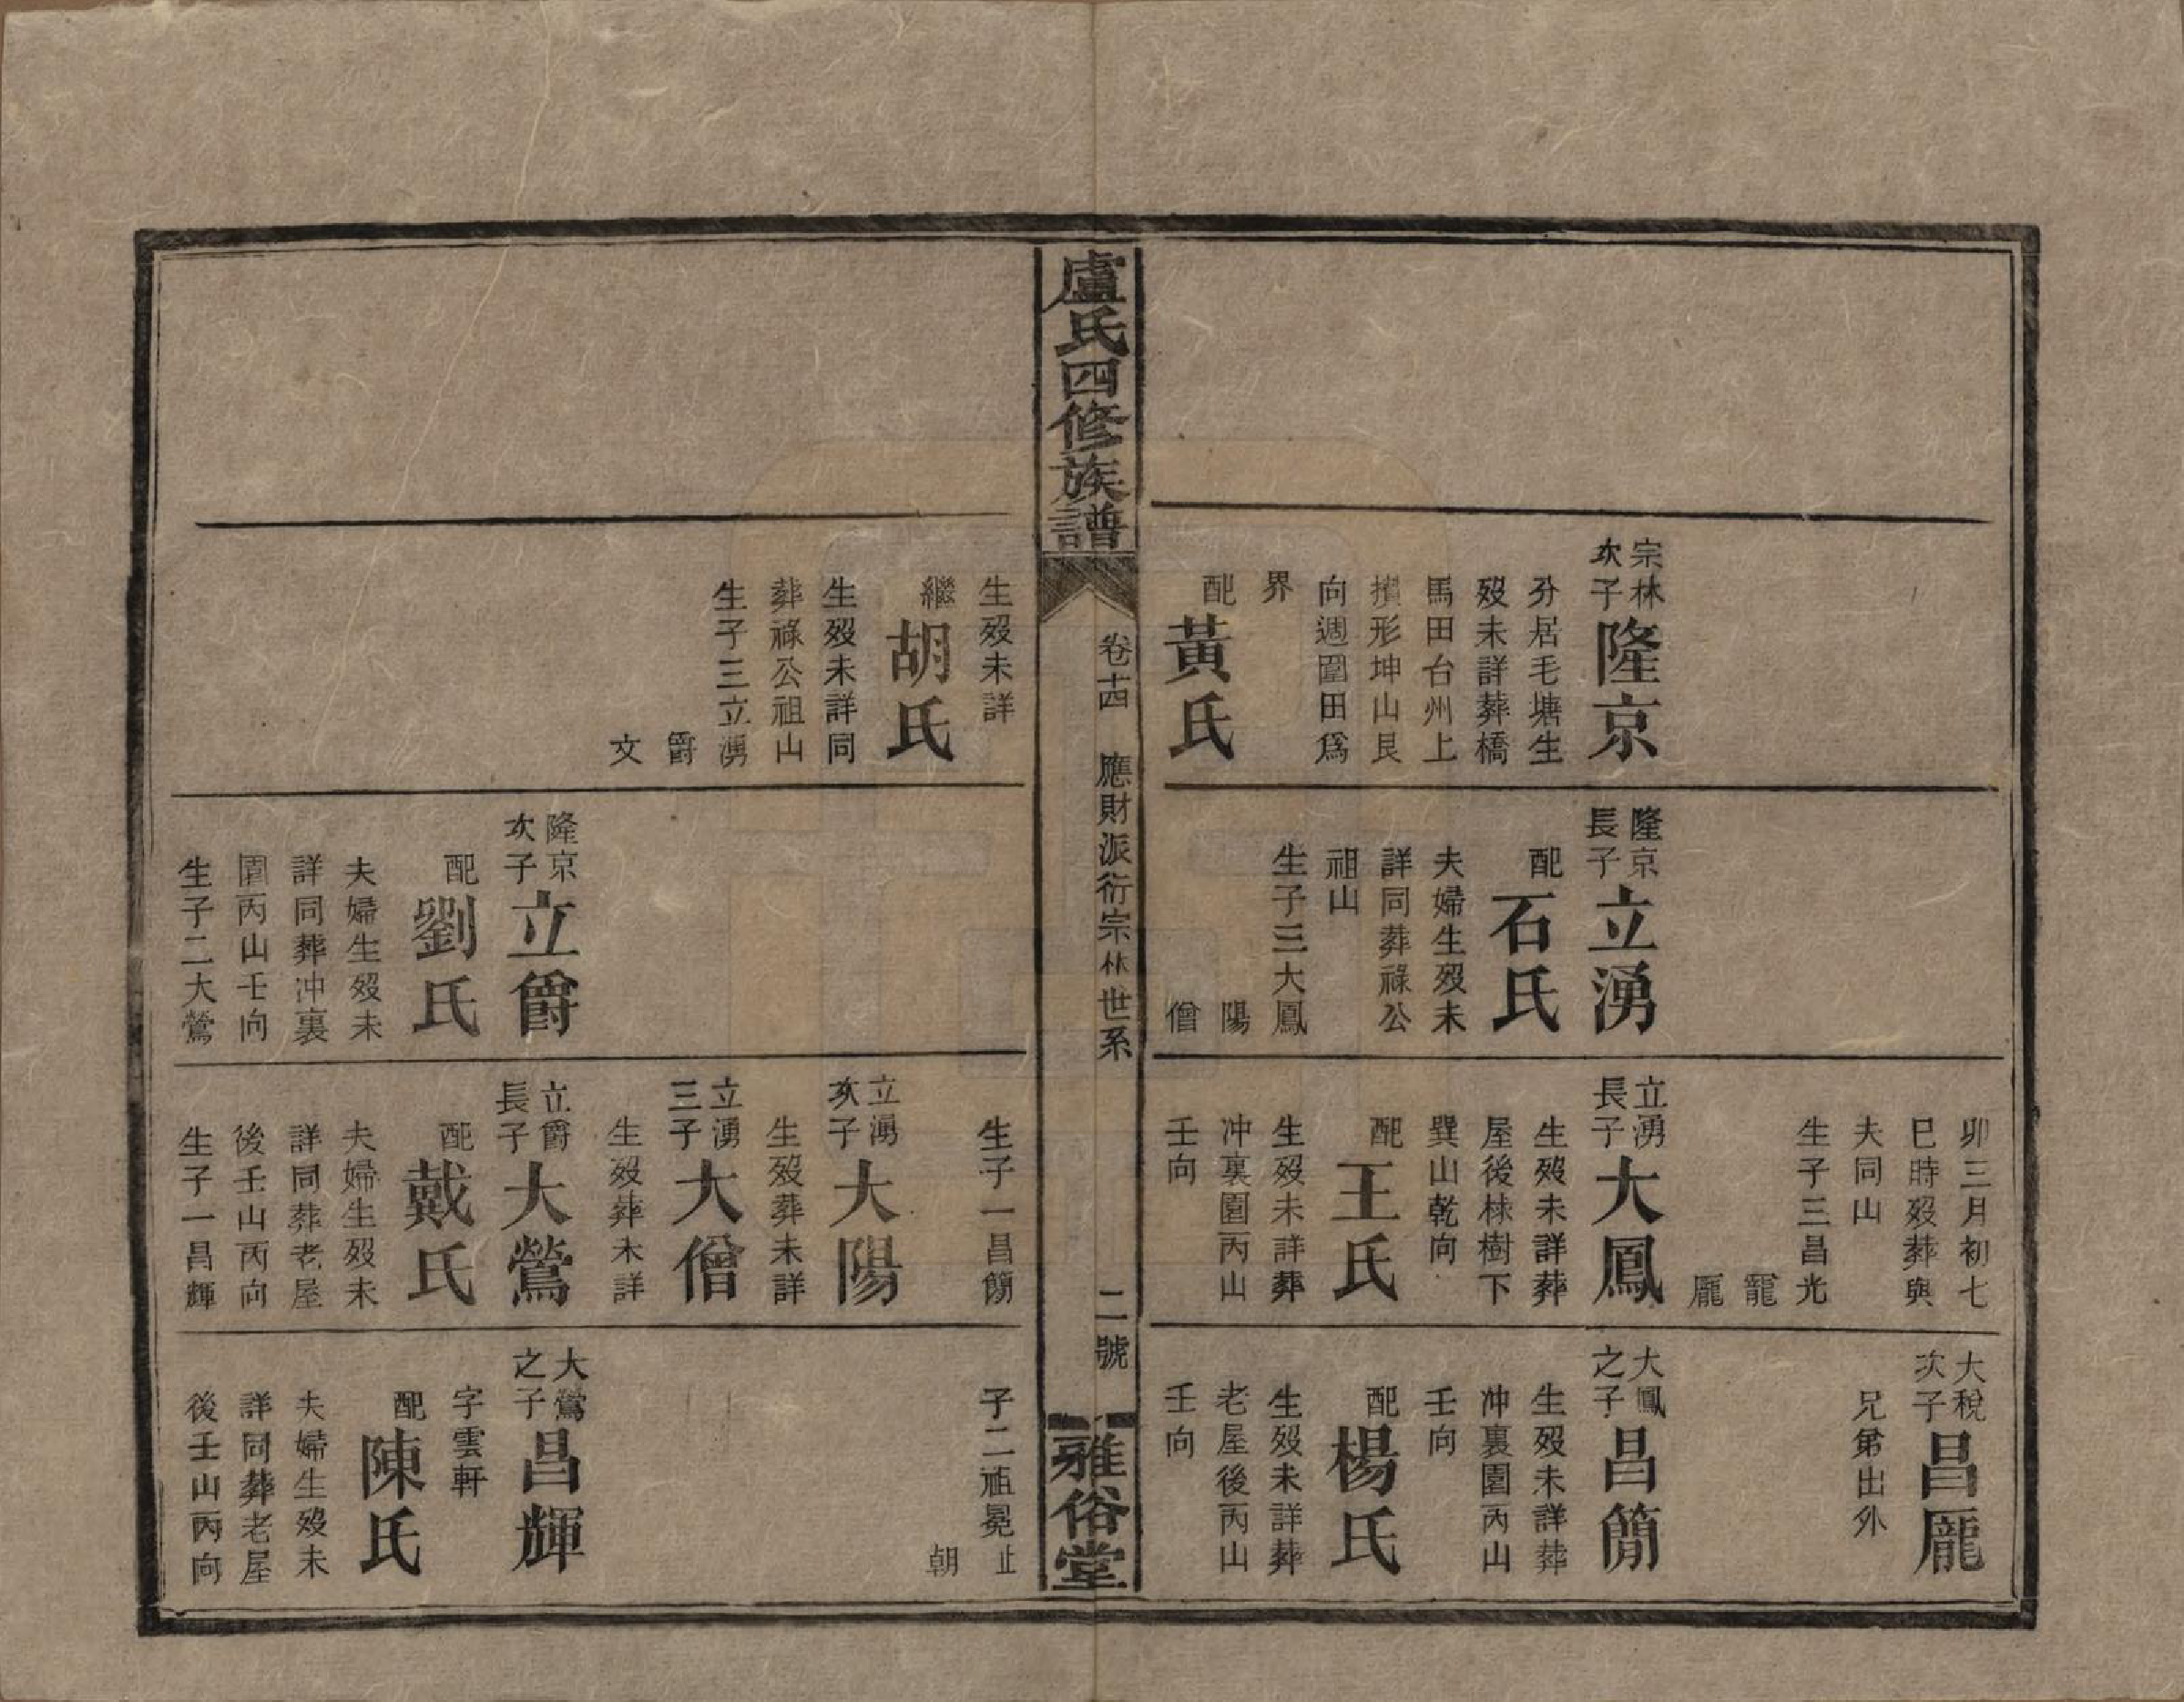 宗林
次子
隆京
分居毛塘生
歿未詳葬橋
馬田台州上
形坤山艮
向週圍田爲
界
配
黃氏
隆京
長子
立湧
配
石氏
夫婦生歿未
詳同葬祿公
祖山
生子三大鳳
陽
僧
卯三月初七
巳時歿葬與
夫同山
生子三昌光
寵
龎
立湧
長子
大鳳
生歿未詳葬
屋後林樹下
巽山乾向
配
王氏
生歿未詳葬
冲裏園丙山
壬向
大稅
次子
昌龎
兄弟出外
大鳳
之子
昌簡
生歿未詳葬
冲裏園丙山
壬向
配
楊氏
生歿未詳葬
老屋後丙山
壬向
盧氏四修族譜
卷十四
應財派衍宗林世系
二號
雅俗堂
生歿未詳
繼
胡氏
生歿未詳同
葬祿公祖山
生子三立湧
爵
文
隆京
次子
立爵
配
劉氏
夫婦生歿未
詳同葬冲裏
園丙山壬向
生子二大鶯
生子一昌簡
立湧
次子
大陽
生歿葬未詳
立湧
三子
大僧
生歿葬未詳
立爵
長子
大鶯
配
戴氏
夫婦生歿未
詳同葬老屋
後壬山丙向
生子一昌輝
子二祖冕止
朝
大鶯
之子
昌輝
字雲軒
配
陳氏
夫婦生歿未
詳同葬老屋
後壬山丙向